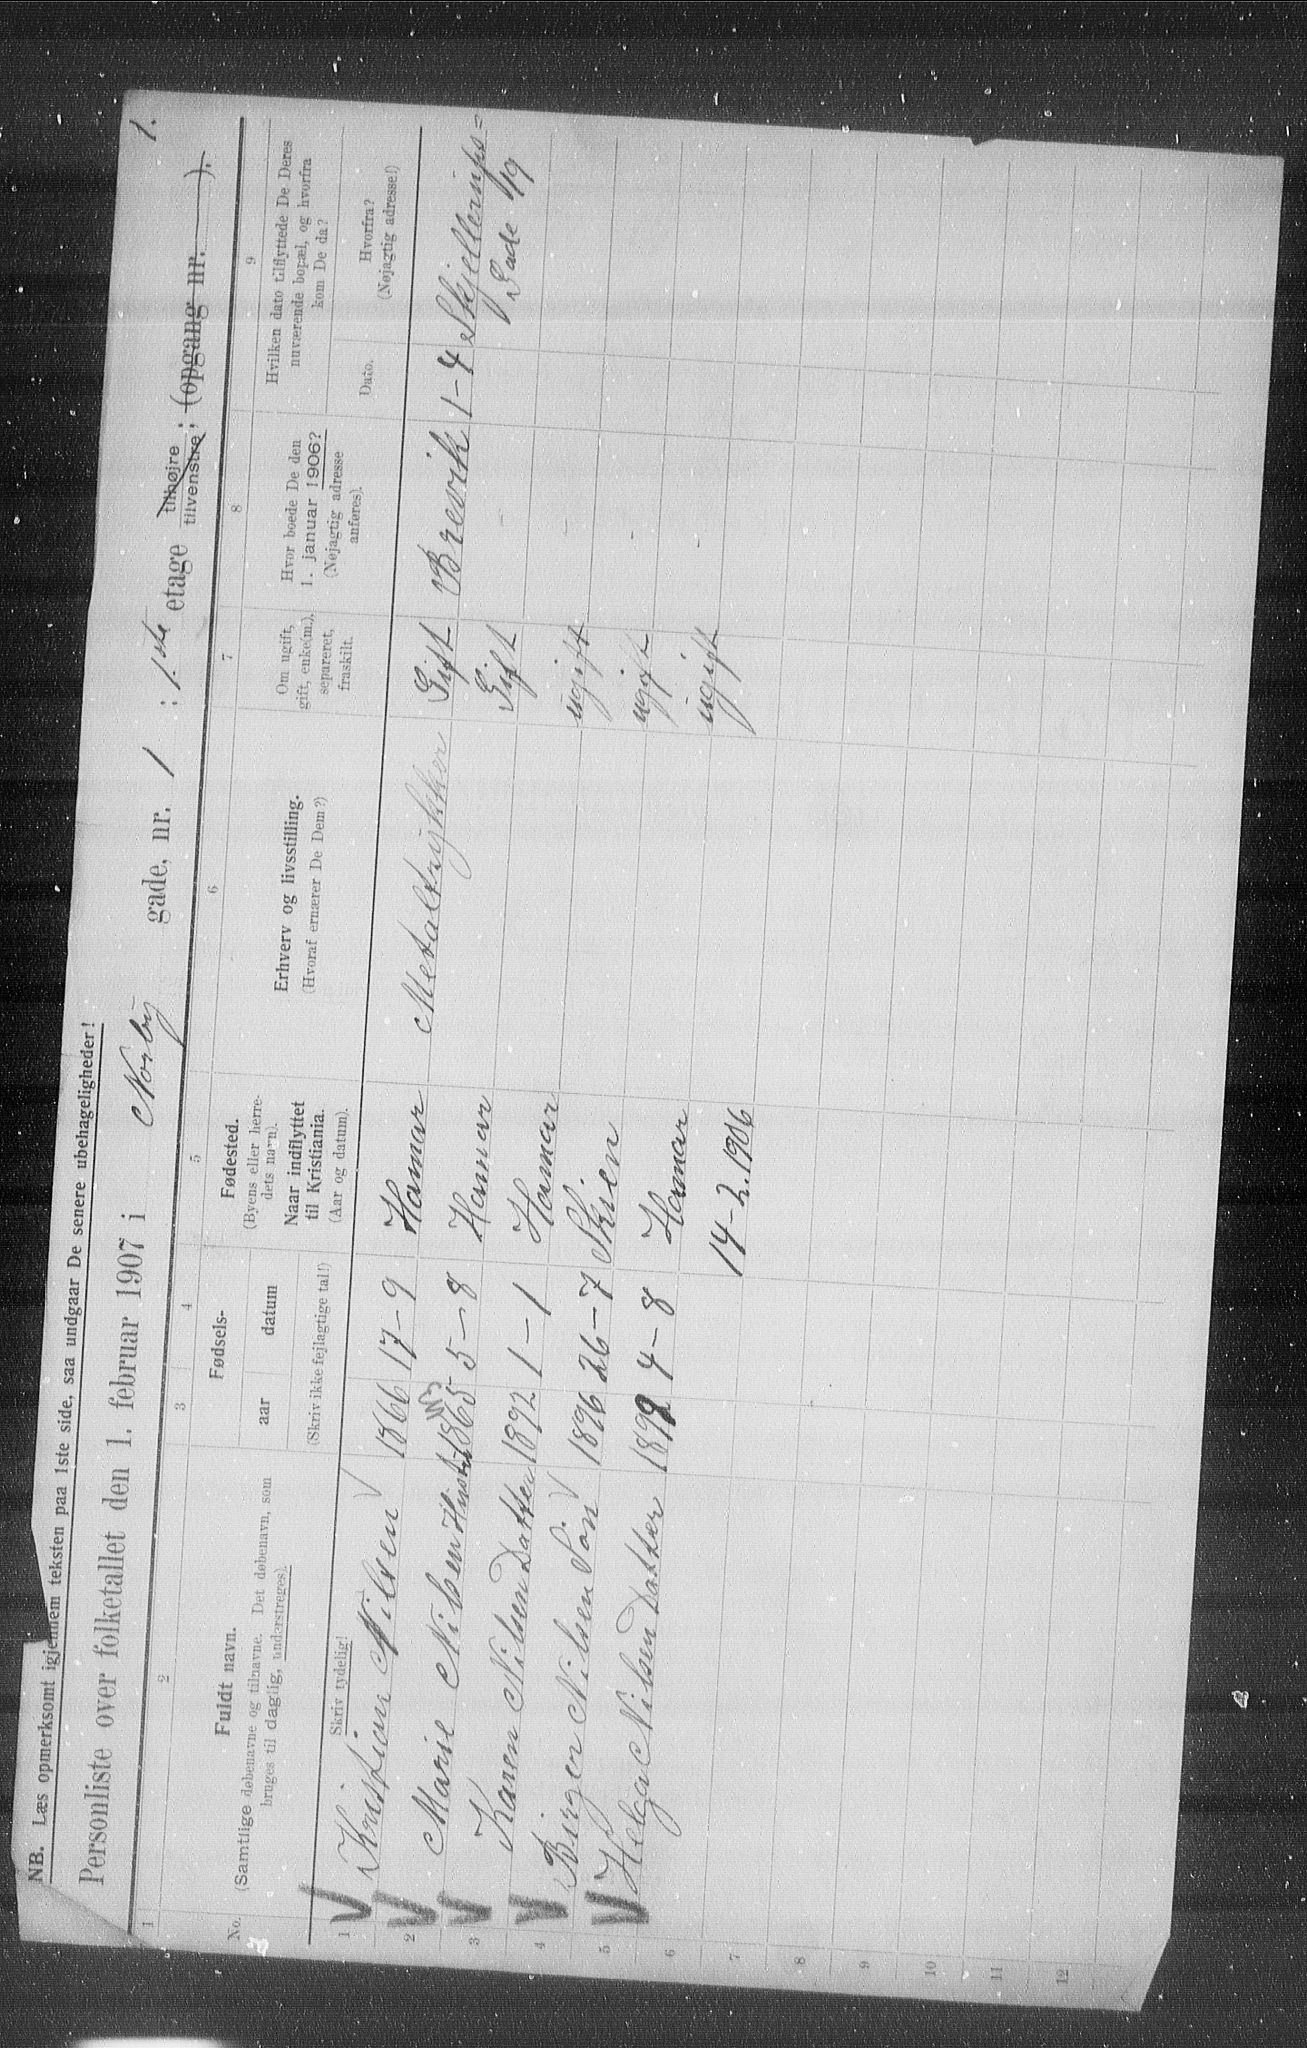 NB. Læs opmerksomt igjennem teksten paa 1ste side, saa undgaar De senere ubehageligheder!
1.
Personliste over folketallet den 1. februar 1907 i Norby gade, nr. 1 : 1.ste etage tilhøjre tilvenstre; (opgang nr. ).
1 2 3 4 5 6 7 8 9
No.
Fuldt navn.
(Samtlige døbenavne og tilnavne. Det døbenavn, som
bruges til daglig, understreges).
Skriv tydelig!
Fødsels-
aar datum
(Skriv ikke fejlagtige tal!)
Fødested.
(Byens eller herre-
dets navn).
Naar indflyttet
til Kristiania.
(Aar og datum).
Erhverv og livsstilling.
(Hvoraf ernærer De Dem?)
Om ugift,
gift, enke(m.),
separeret,
fraskilt.
Hvor boede De den
1. januar 1906?
(Nøjagtig adresse
anføres).
Hvilken dato tilflyttede De Deres
nuværende bopæl, og hvorfra
kom De da?
Dato. Hvorfra?
(Nøjagtig adresse!)
1 Kristian Nilsen 1866 17-9 Hamar Metaltrykker Gift Brevik 1-4
Gade
2 Marie Nilsen Hustru 1865 5-8 Hamar Gift
3 Karen Nilsen Datter 1892 1-1 Hamar ugift
4 Birger Nilsen Søn 1896 26-7 Skien ugift
5 Helga Nilsen Datter 4-8 Hamar ugift
6 14-2.1906
7
8
9
10
11
12